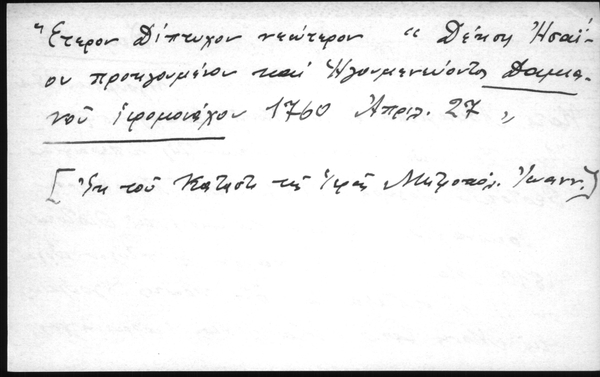 Ἕτερον Δίπτυχον νεώτερον “ Δέησις Ἡσαΐ-
ου προηγουμένου καὶ Ἡγουμενεύοντος Δαμια-
νοῦ ἱερομονάχου 1760 Ἀπριλ. 27 „
[Ἐκ τοῦ Κατάστ τῆς Ἱερᾶς Μητροπόλ. Ἰωανν.]